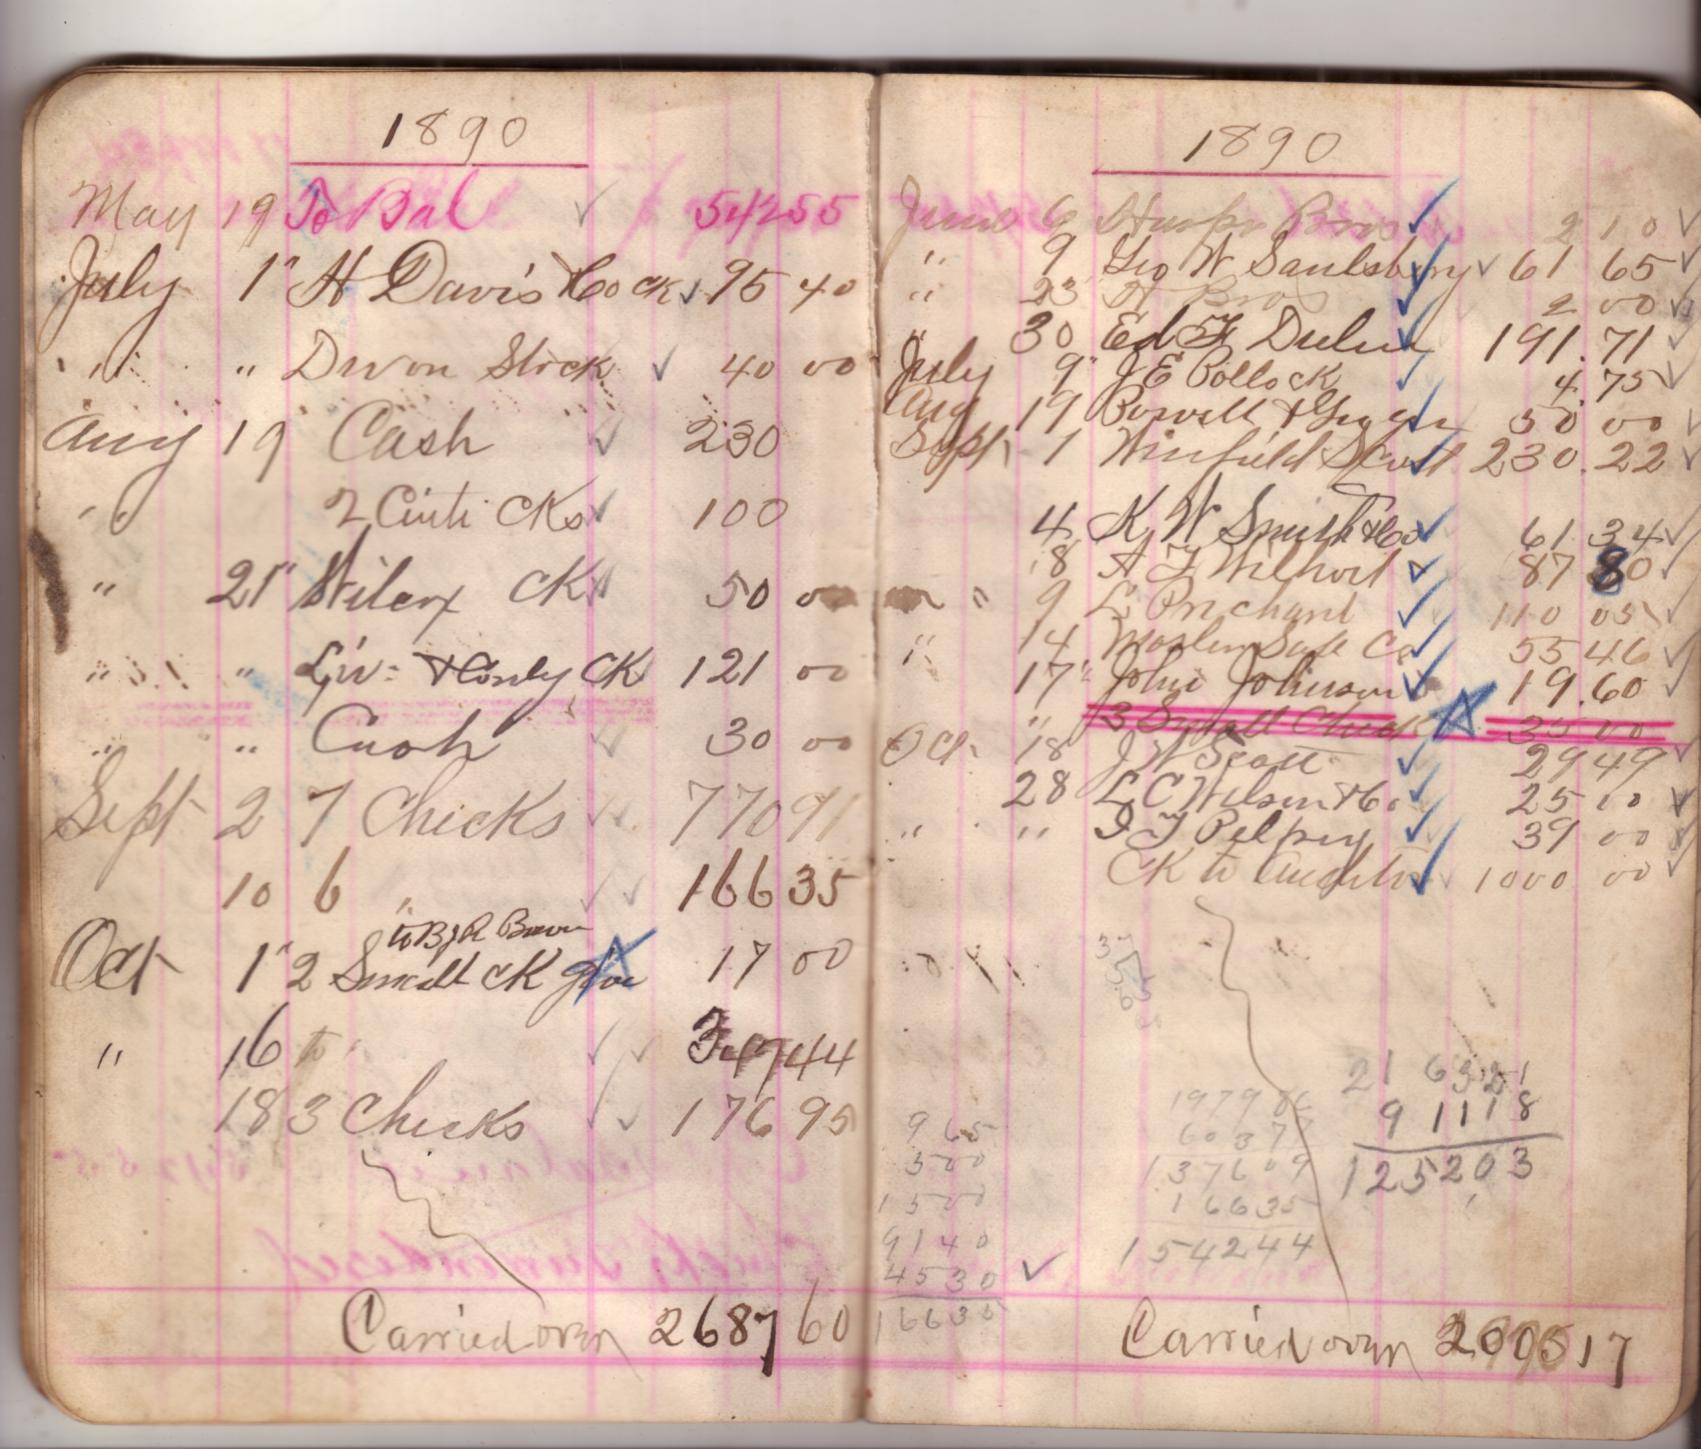 1890
May 19 To Bal 542 55
July 1" H Davis & Co ck 95 40
" " Devon Stock 40 00
Aug 19 Cash 230
" 2 Cks 100
" 21" Wilcox CK 50 00
" " Liv: & Conly CK 121 00
" " Cash 30 00
Sept 2 7 Checks 770 91
10 6 " 166 35
to B J R Brown
Oct 1" 2 Small cK give 17 00
" 16 to 347 44
18 3 Checks 176 95
Carried over 2687 60
1890
June 6 Bros 2 10
" 9 Geo W Saulsbury 61 65
" 23 H Bros 2 00
30 Ed F 191.71
July 9" J E Pollock 4.75
Aug 19 Powell & 50 00
Sept 1 Winfield Scott 230.22
4 K W Smith & Co 61 34
8 A F Wilhoit 87 80
" 9 L Prichard 110 05
" 14 Safe Co 55 46
17" John Johnson 19.60
" 3 Small Checks 35 00
Oct 18 J W Scott 29 49
28 L C Wilson & Co 25 00
" " J F Pelfrey 39 00
CK to 1000 00
21 63 21
9 11 18
125203
197986
60377
137609
16635
154244
9 65
500
1500
9140
4530
16635
Carried over 2005 17